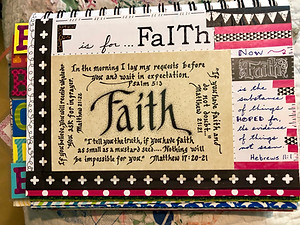 F is for... FaITh
In the morning I lay my requests before
you and wait in expectation.
Psalm 5:3
If you believe, you will receive whatever
you ask for in prayer.
Matthew 21:22
Faith
If you have faith and
do not doubt...
Matthew 21:21
"I tell you the truth, if you have faith
as small as a mustard seed... Nothing will
be impossible for you." Matthew 17:20-21
Now
Faith
is the
substance
of things
HOPED for,
the evidence
of things
not seen.
Hebrews 11:1